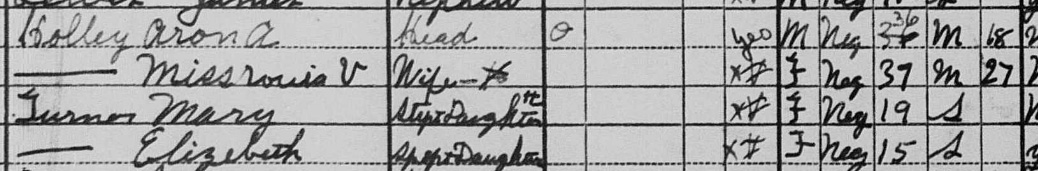 Nephew M Neg S
Holley Aron A Head O yes M Neg 36 M 18
—— Missrouia V Wife-H F Neg 37 M 27
Turner Mary Step Daughter F Neg 19 S
—— Elizebeth Step Daughter F Neg 15 S